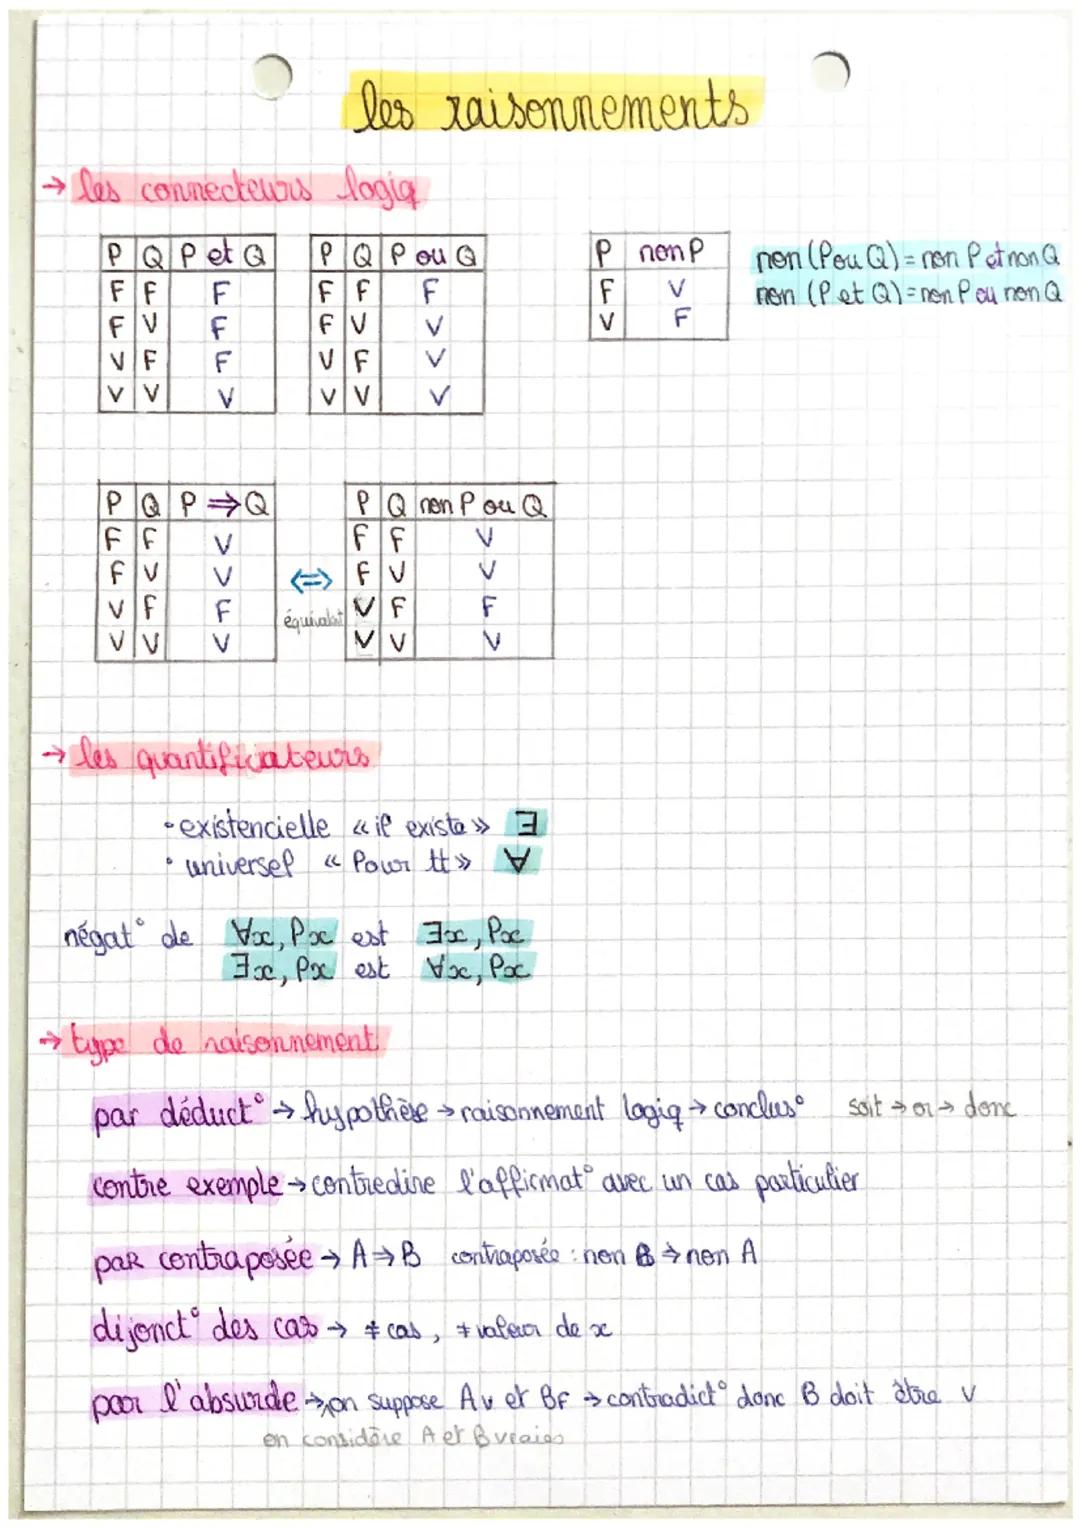 les raisonnements
→ les connecteurs logiq
P Q P et Q
F F F
F V F
V F F
V V V
P Q P ou Q
F F F
F V V
V F V
V V V
P non P
F V
V F
non (P ou Q) = non P et non Q
non (P et Q) = non P ou non Q
P Q P ⇒ Q
F F V
F V V
V F F
V V V
⇔
équivalst
P Q non P ou Q
F F V
F V V
V F F
V V V
→ les quantificateurs
• existencielle « il existe » ∃
• universel « Pour tt » ∀
négat° de ∀x, Px est ∃x, Px
∃x, Px est ∀x, Px
→ type de raisonnement
par déduct° → hypothèse → raisonnement logiq → conclus° soit → or → donc
contre exemple → contredire l'affirmat° avec un cas particulier
par contraposée → A ⇒ B contraposée : non B ⇒ non A
dijonct° des cas → ≠ cas, ≠ valeur de x
par l'absurde → on suppose Av et BF → contradict° donc B doit être v
on considère A et B vraies